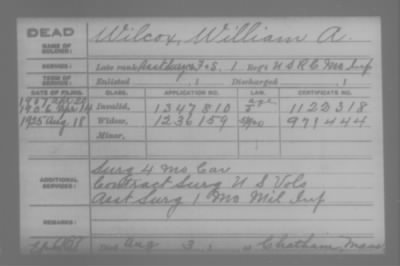 DEAD
NAME OF SOLDIER: Wilcox, William A.
SERVICE: Late rank, Asst Surg, F+S, 1 Reg't U S R C Mo Inf
TERM OF SERVICE: Enlisted , 1 Discharged , 1
DATE OF FILING. CLASS. APPLICATION NO. LAW. CERTIFICATE NO.
Invalid, 1347810 age 1122318
1925 Aug 18 Widow, 1236159 971444
Minor,
ADDITIONAL SERVICES: Surg 4 Mo Cav
Contract Surg U S Vols
Asst Surg 1 Mo Mil Inf
REMARKS:
Aug 3, Chatham, Mass